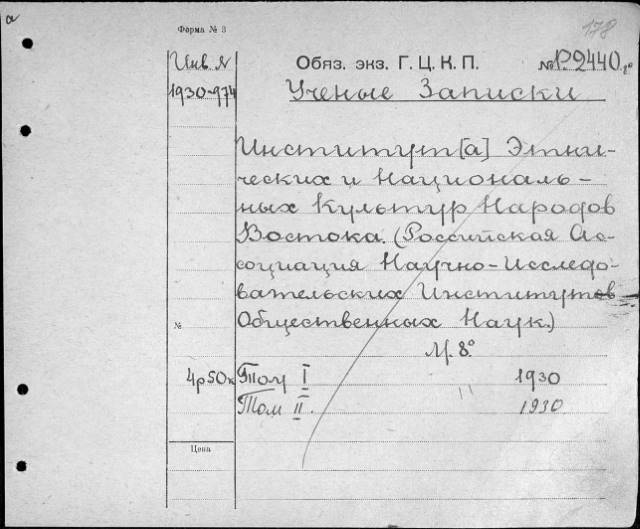 а
Форма № 3
178
Инв. №
Обяз. экз. Г. Ц. К. П.
№ Р.2440.8°
1930-974
Ученые Записки
Институт[а] Этни-
ческих и Националь-
ных Культур Народов
Востока. (Российская Ас-
социация Научно-Исследо-
вательских Институтов
Общественных Наук.)
№
М. 8°
4р50к
Том I
1930
Том II.
"
1930
Цена